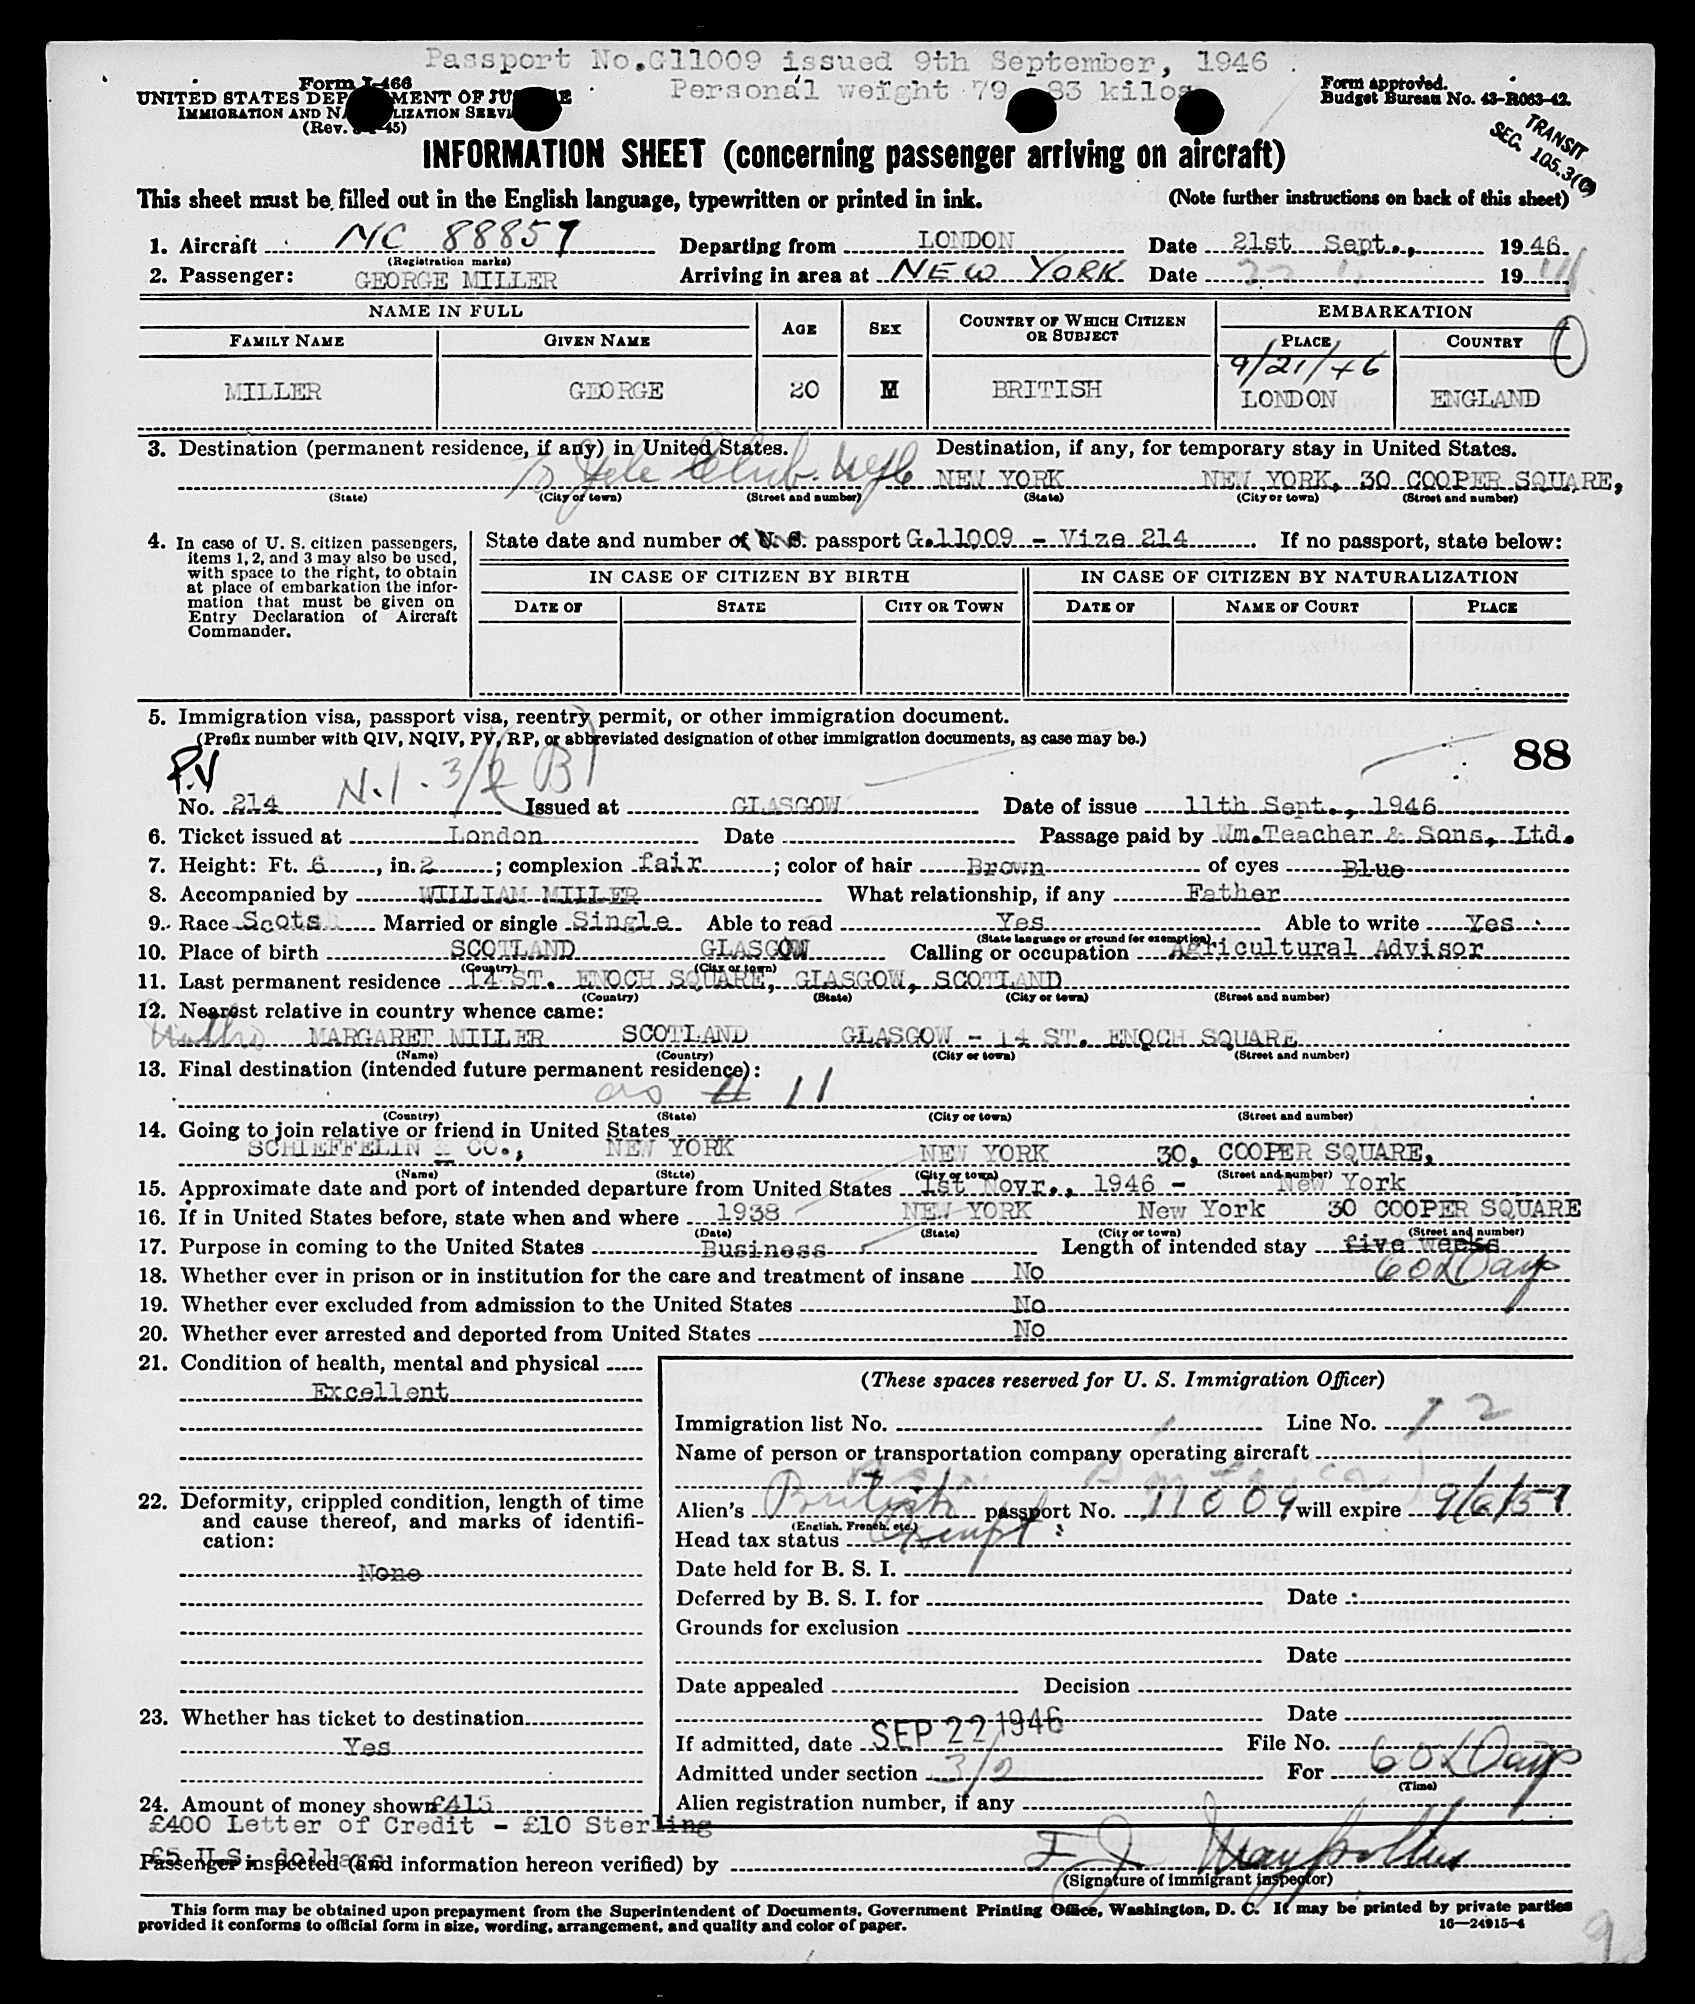 Passport No.G11009 issued 9th September, 1946
Personal weight 79 83 kilos
Form I-466
UNITED STATES DEP MENT OF JU E
IMMIGRATION AND N LIZATION SERVI
(Rev. 45)
Form approved.
Budget Bureau No. 43-R063-42.
TRANSIT
SEC. 105.3(C)
INFORMATION SHEET (concerning passenger arriving on aircraft)
This sheet must be filled out in the English language, typewritten or printed in ink. (Note further instructions on back of this sheet)
1. Aircraft NC 88857 Departing from LONDON Date 21st Sept., 1946.
(Registration marks)
2. Passenger: GEORGE MILLER Arriving in area at NEW YORK Date 22 19
NAME IN FULL AGE SEX COUNTRY OF WHICH CITIZEN OR SUBJECT EMBARKATION
FAMILY NAME GIVEN NAME PLACE COUNTRY
9/21/46
MILLER GEORGE 20 M BRITISH LONDON ENGLAND
3. Destination (permanent residence, if any) in United States. Destination, if any, for temporary stay in United States.
NEW YORK NEW YORK, 30 COOPER SQUARE,
(State) (City or town) (Street and number) (State) (City or town) (Street and number)
4. In case of U. S. citizen passengers, items 1, 2, and 3 may also be used, with space to the right, to obtain at place of embarkation the information that must be given on Entry Declaration of Aircraft Commander.
State date and number of U. S. passport G.11009 - Viza 214 If no passport, state below:
IN CASE OF CITIZEN BY BIRTH IN CASE OF CITIZEN BY NATURALIZATION
DATE OF STATE CITY OR TOWN DATE OF NAME OF COURT PLACE
5. Immigration visa, passport visa, reentry permit, or other immigration document.
(Prefix number with QIV, NQIV, PV, RP, or abbreviated designation of other immigration documents, as case may be.)
88
P.V N.I. 3/2 B)
No. 214 Issued at GLASGOW Date of issue 11th Sept., 1946
6. Ticket issued at London Date Passage paid by Wm.Teacher & Sons, Ltd.
7. Height: Ft. 6, in. 2; complexion fair; color of hair Brown of eyes Blue
8. Accompanied by WILLIAM MILLER What relationship, if any Father
9. Race Scots Married or single Single Able to read Yes Able to write Yes
(State language or ground for exemption)
10. Place of birth SCOTLAND GLASGOW Calling or occupation Agricultural Advisor
(Country) (City or town)
11. Last permanent residence 14 ST. ENOCH SQUARE, GLASGOW, SCOTLAND
(Country) (State) (City or town) (Street and number)
12. Nearest relative in country whence came:
MARGARET MILLER SCOTLAND GLASGOW - 14 ST. ENOCH SQUARE
(Name) (Country) (City or town) (Street and number)
13. Final destination (intended future permanent residence):
as # 11
(Country) (State) (City or town) (Street and number)
14. Going to join relative or friend in United States
SCHIEFFELIN & CO., NEW YORK NEW YORK 30, COOPER SQUARE,
(Name) (State) (City or town) (Street and number)
15. Approximate date and port of intended departure from United States 1st Novr., 1946 - New York
16. If in United States before, state when and where 1938 NEW YORK New York 30 COOPER SQUARE
(Date) (State) (City or town) (Street and number)
17. Purpose in coming to the United States Business Length of intended stay five weeks
60 Days
18. Whether ever in prison or in institution for the care and treatment of insane No
19. Whether ever excluded from admission to the United States No
20. Whether ever arrested and deported from United States No
21. Condition of health, mental and physical
Excellent
22. Deformity, crippled condition, length of time and cause thereof, and marks of identification:
None
23. Whether has ticket to destination
Yes
24. Amount of money shown £415
£400 Letter of Credit - £10 Sterling
£5 U.S. dollars
(These spaces reserved for U. S. Immigration Officer)
Immigration list No. Line No. 12
Name of person or transportation company operating aircraft
Alien's British passport No. 11009 will expire 9/6/51
(English, French, etc.)
Head tax status Exempt
Date held for B. S. I.
Deferred by B. S. I. for Date
Grounds for exclusion
Date
Date appealed Decision
Date
If admitted, date SEP 22 1946 File No.
Admitted under section 3/2 For 60 Days
(Time)
Alien registration number, if any
Passenger inspected (and information hereon verified) by
(Signature of immigrant inspector)
This form may be obtained upon prepayment from the Superintendent of Documents, Government Printing Office, Washington, D. C. It may be printed by private parties
provided it conforms to official form in size, wording, arrangement, and quality and color of paper. 16—24915-4
9